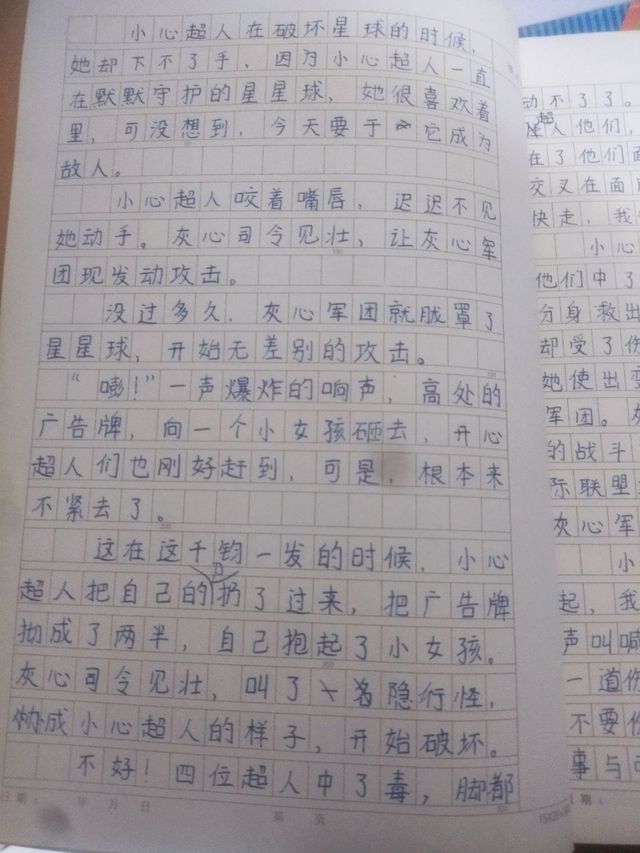 小心超人在破坏星球的时候，
她却下不了手，因为小心超人一直
在默默守护的星星球，她很喜欢着
里，可没想到，今天要于它成为
敌人。
小心超人咬着嘴唇，迟迟不见
她动手。灰心司令见壮，让灰心军
团现发动攻击。
没过多久，灰心军团就胧罩了
星星球，开始无差别的攻击。
“嘭！”一声爆炸的响声，高处的
广告牌，向一个小女孩砸去，开心
超人们也刚好赶到，可是，根本来
不紧去了。
这在这千钧一发的时候，小心
超人把自己的刀扔了过来，把广告牌
拗成了两半，自己抱起了小女孩。
灰心司令见壮，叫了一名隐行怪，
成小心超人的样子，开始破坏。
不好！四位超人中了毒，脚都
日期： 年 月 日 第 页
动不了了。
超人他们，
在了他们面
交叉在面
快走，我
小心
他们中了
分身救出
却受了伤
她使出
军团。
的战斗
际联盟
灰心军
小
起，我
声叫喊
一道伤
不要伤
事与
期：